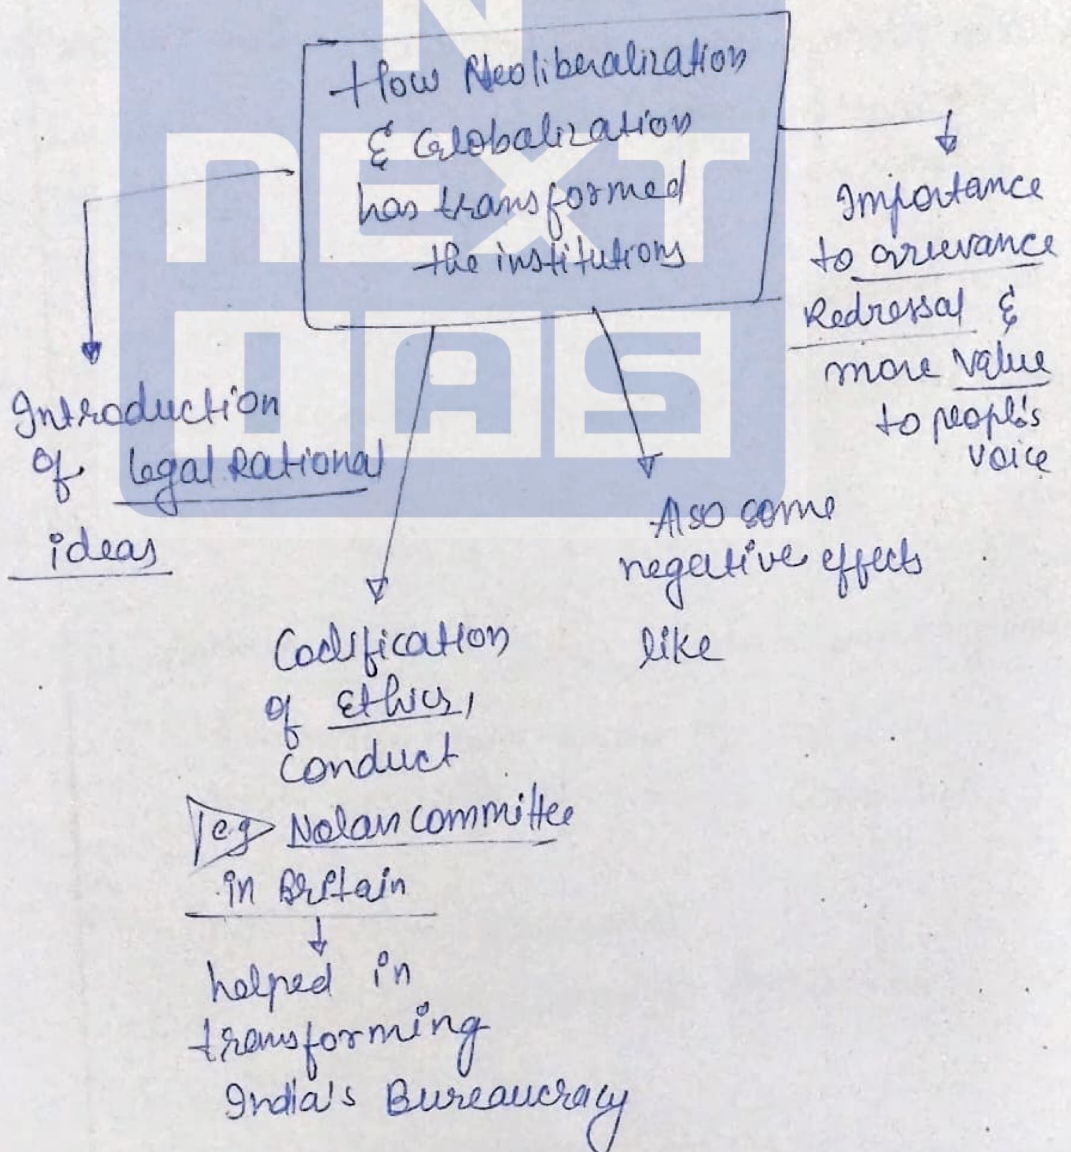 How Neoliberalization
& Globalization
has transformed
the institutions
Importance
to Grievance
Redressal &
more value
to people's
voice
Introduction
of legal Rational
ideas
Also some
negative effects
like
Codification
of Ethics,
Conduct
eg Nolan Committee
in Britain
helped in
transforming
India's Bureaucracy
NEXT
IAS